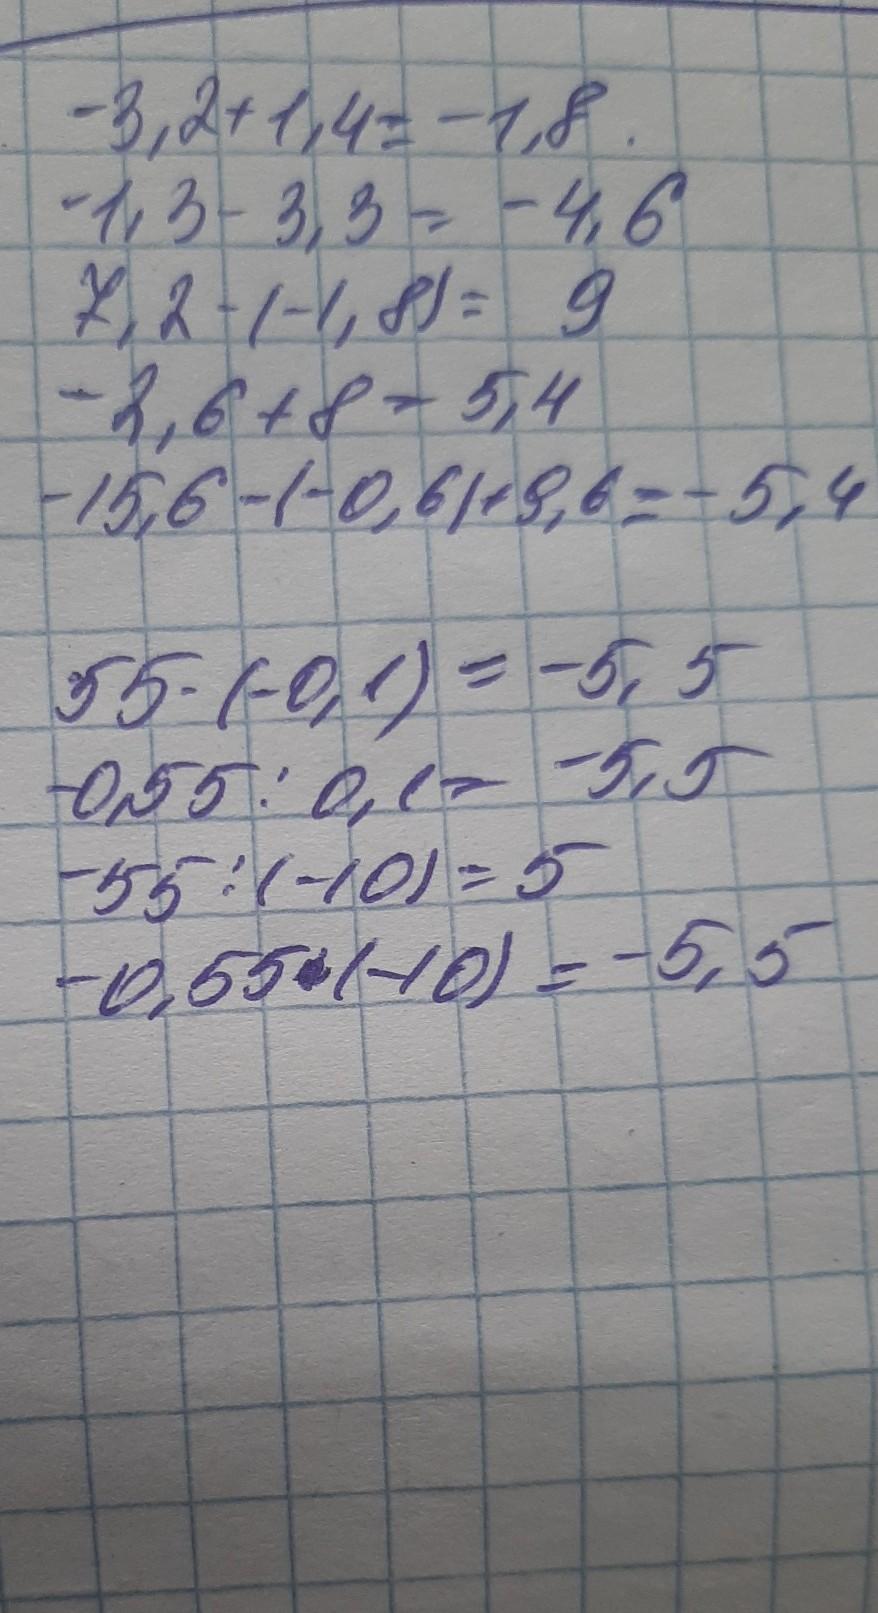 -3,2+1,4=-1,8.
-1,3-3,3=-4,6
7,2-(-1,8)=9
-2,6+8=5,4
-15,6-(-0,6)+9,6=-5,4
55·(-0,1)=-5,5
-0,55:0,1=-5,5
-55:(-10)=5
-0,55·(-10)=-5,5